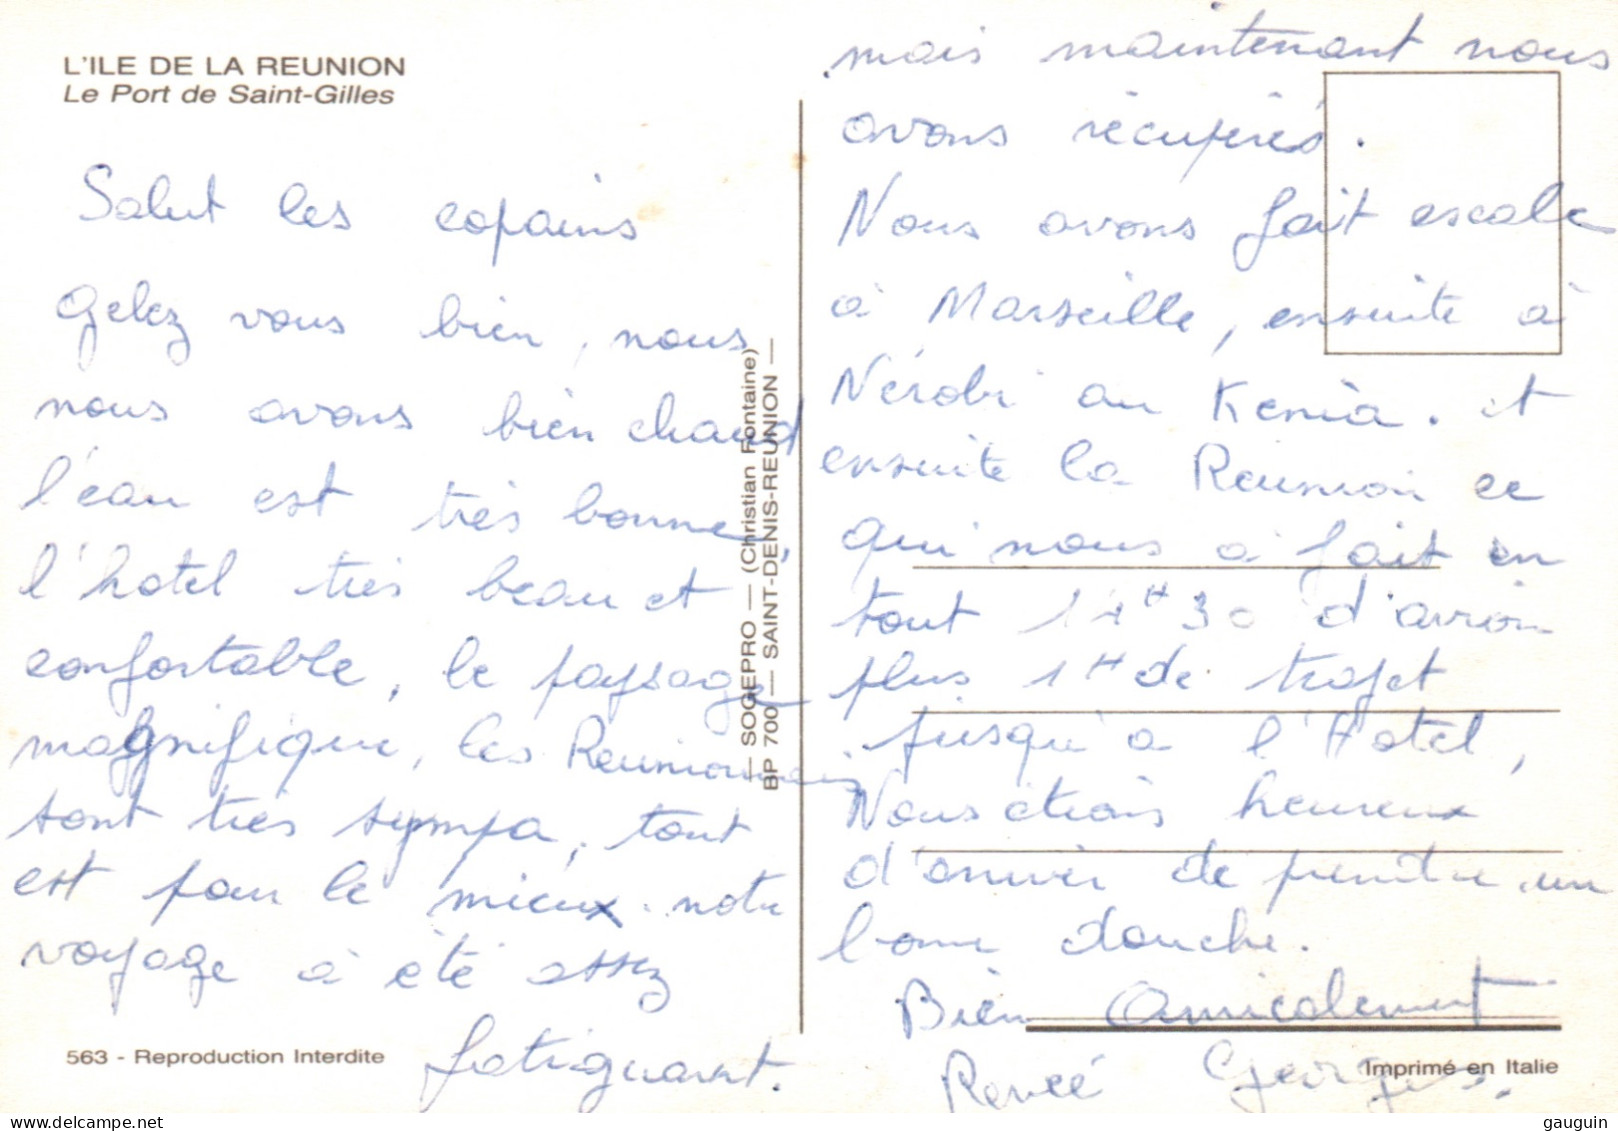 L'ILE DE LA REUNION
Le Port de Saint-Gilles
Salut les copains
Gelez vous bien, nous
nous avons bien chaud
l'eau est très bonne,
l'hotel très beau et
confortable, le paysage
magnifique, les Reunionnais
sont très sympa, tout
est pour le mieux. notre
voyage à été assez
fatiguant.
mais maintenant nous
avons récupérés.
Nous avons fait escale
à Marseille, ensuite à
Nérobi au Kenia. et
ensuite la Reunion ce
qui nous a fait en
tout 11H30 d'avion
plus 1H de trajet
jusqu'a l'Hotel,
Nous étions heureux
d'arriver de prendre un
bonne douche.
Bien Amicalement
Renée Georges.
— SOGEPRO — (Christian Fontaine)
BP 700 — SAINT-DENIS-REUNION —
563 - Reproduction Interdite
Imprimé en Italie
gauguin